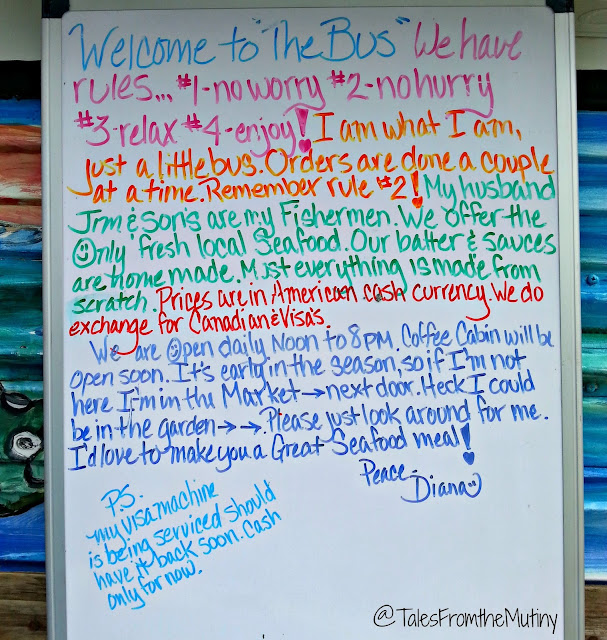 Welcome to "The Bus" We have
rules... #1-no worry #2-no hurry
#3-relax #4-enjoy! I am what I am,
just a little bus. Orders are done a couple
at a time. Remember rule #2! My husband
Jim & sons are my Fishermen. We offer the
Only fresh local Seafood. Our batter & sauces
are home made. Most everything is made from
scratch. Prices are in American cash currency. We do
exchange for Canadian & Visa's.
We are Open daily Noon to 8PM. Coffee Cabin will be
open soon. It's early in the season, so if I'm not
here I'm in the Market → next door. Heck I could
be in the garden →→. Please just look around for me.
I'd love to make you a Great Seafood meal!
Peace-
Diana
P.S.
my visa-machine
is being serviced should
have it back soon. Cash
only for now.
@TalesFromtheMutiny